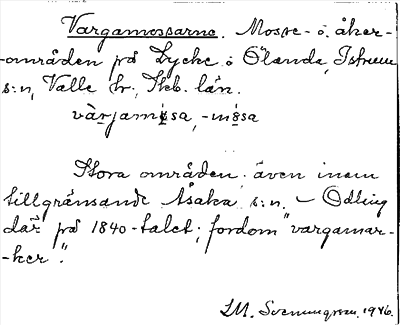 Vargamossarne. Mosse- o. åker-
-områden på Lycke o. Ölanda, Istrum
s:n, Valle hr., Skb. län.
vàrjamåsa, -måsa
Stora områden. även inom
tillgränsande Åsaka s:n. – Odling
där på 1840-talet; fordom "vargamar-
-ker".
1946.